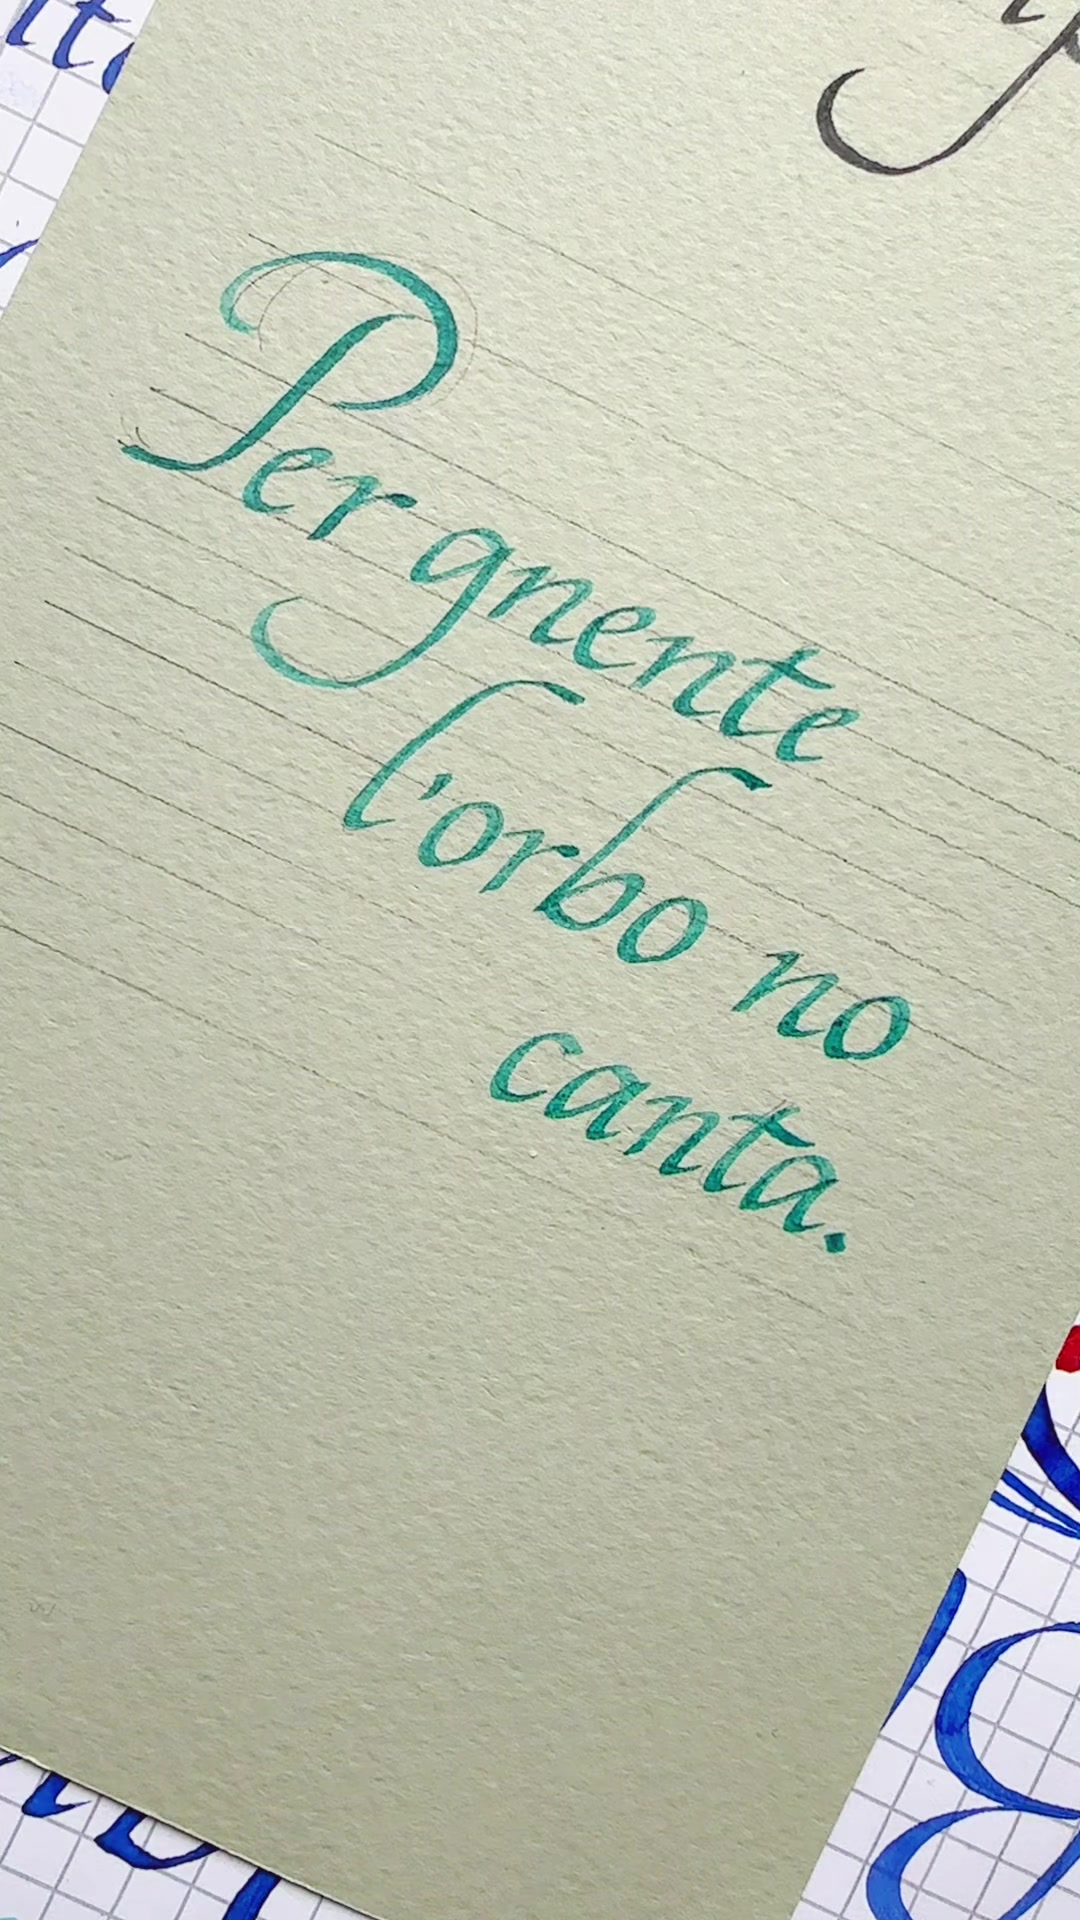 Per gnente
l'orbo no
canta.